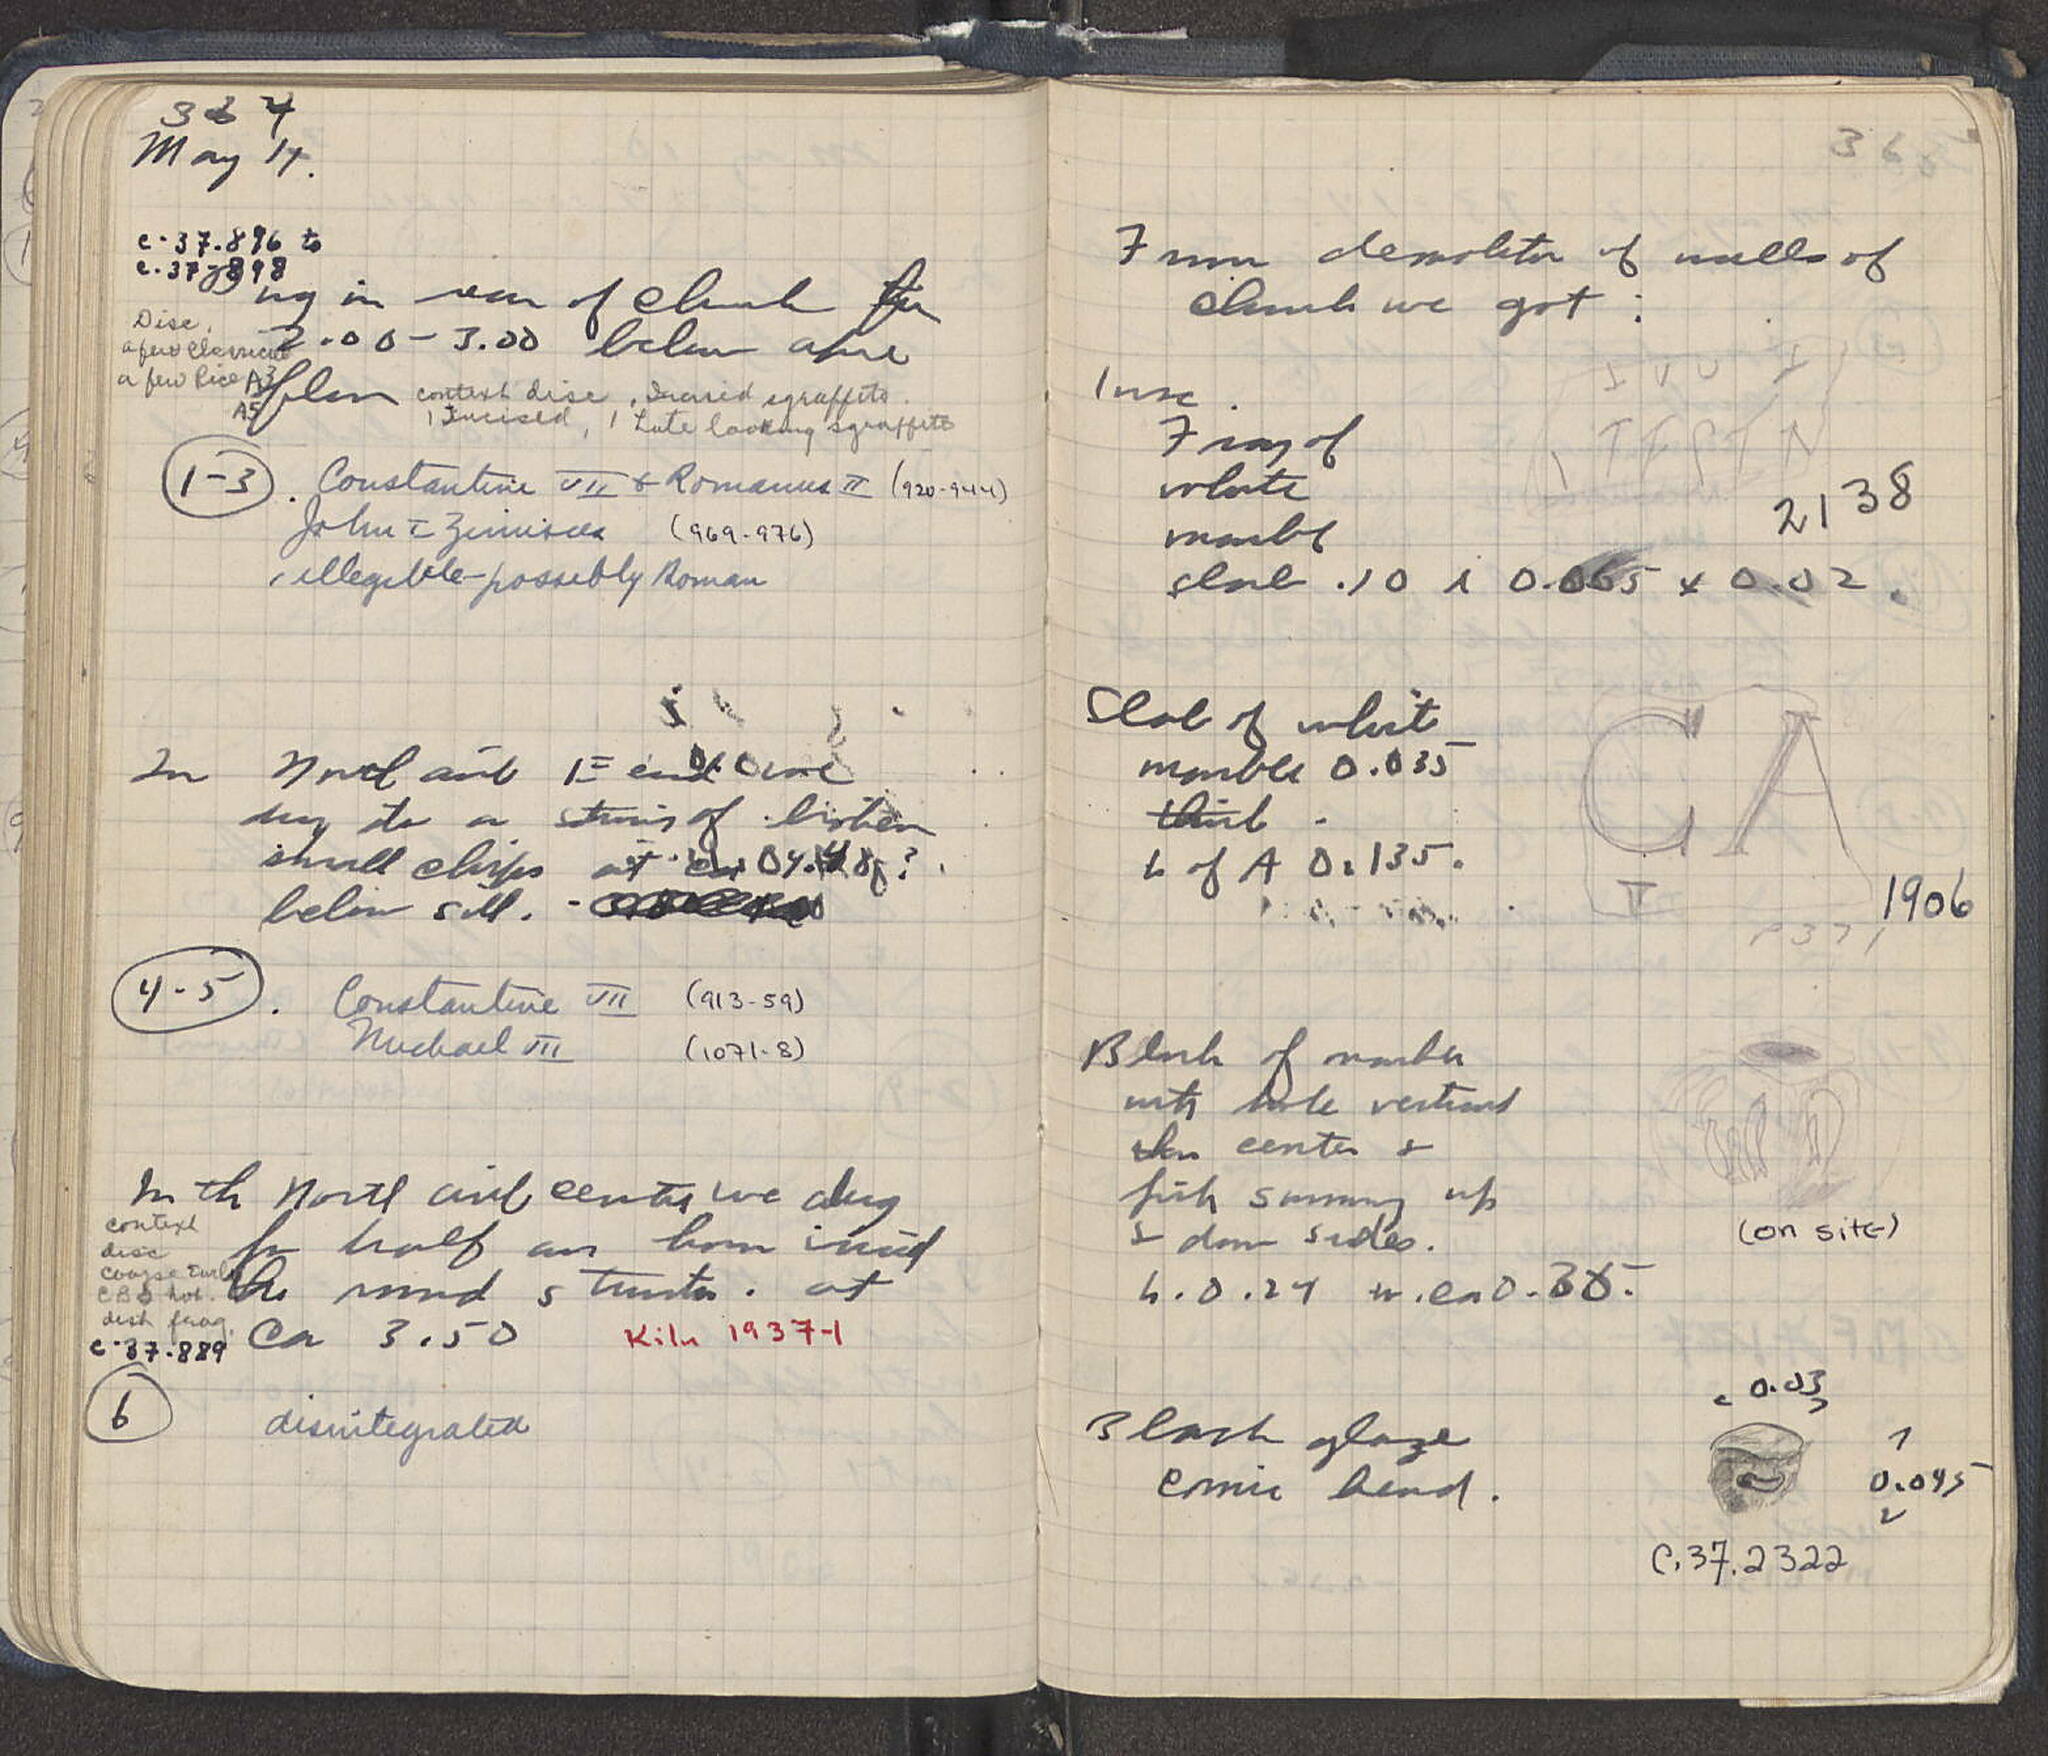 364
May 14.
c.37.896 to
c.37.898
ng in rear of church
2.00-3.00 below
Disc.
a few
a few Rice A3
A5
context disc. Incised sgraffito.
1 Incised, 1 Late looking sgraffito
1-3. Constantine VII & Romanus II (920-944)
John I Zimisces (969-976)
illegible-possibly Roman
In North aisle E end we
dug to a of broken
small chips at
below sill.
4-5. Constantine VII (913-59)
Michael VII (1071-8)
In th North aisle center we dug
for half an hour inside
the round structure. at
Ca 3.50 Kiln 1937-1
context
disc
coarse
dish frag.
c-37-889
6 disintegrated
365
From demolition of walls of
church we got:
Insc.
Frag of
white
marble
slab .10 x 0.065 x 0.02.
2138
Slab of white
marble 0.035
thick.
h of A 0.135.
CA
1906
Block of marble
with hole vertical
thru center &
fish swimming up
& down sides.
(on site)
h.0.24 w.ca 0.
Black glaze
comic head.
0.03
0.045
C.37.2322